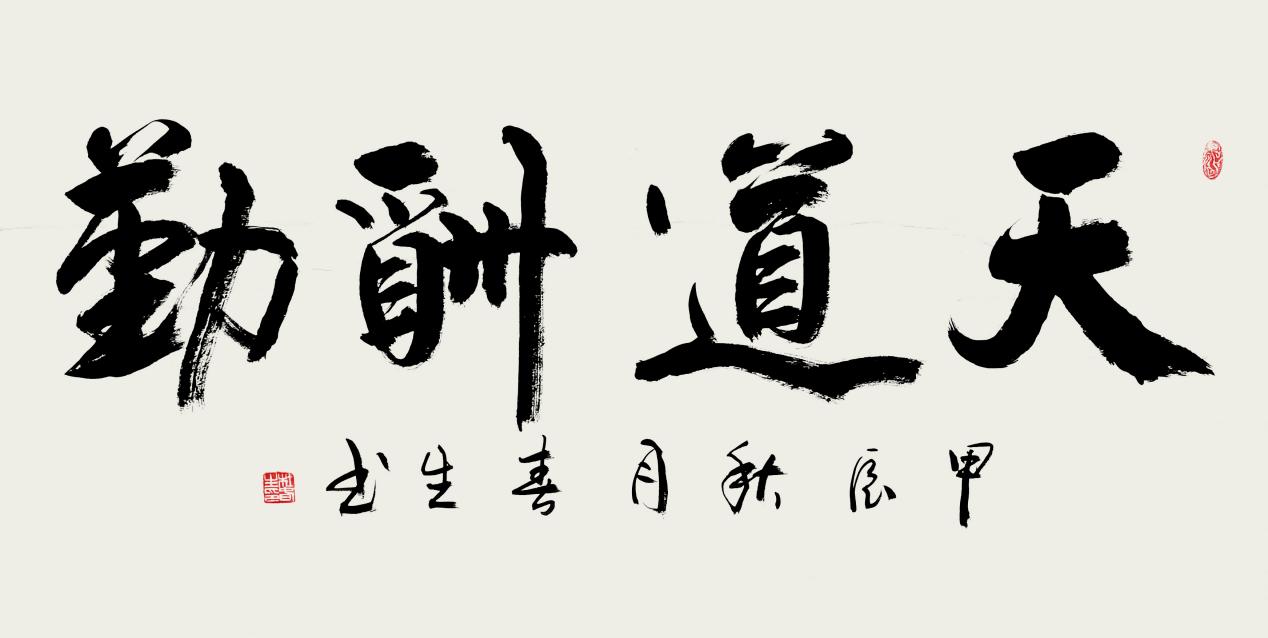 天道酬勤
甲辰秋月春生书